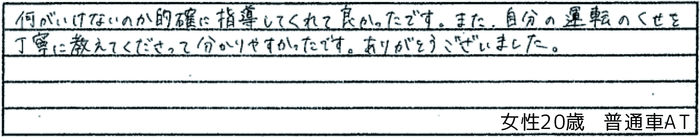 何がいけないのか的確に指導してくれて良かったです。また、自分の運転のくせを
丁寧に教えてくださって分かりやすかったです。ありがとうございました。
女性20歳 普通車AT